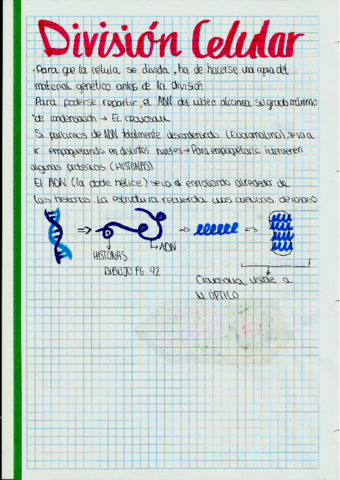 División Celular
·Para que la célula se divida, ha de hacerse una copia del
material genético antes de la división
Para poderse repartir, el ADN del núcleo alcanza su grado máximo
de condensación → El cromosoma
Si partimos de ADN totalmente descondensado (Eucromatina), se va a
ir empaquetando en distintos niveles → Para empaquetarlo intervienen
algunas proteínas (HISTONAS)
El ADN (la doble hélice) se va a ir enrollando alrededor de
las histonas. La estructura recuerda unas cuentas de rosario
HISTONAS
ADN
DIBUJO PG. 92
Cromosoma visible a
M. ÓPTICO